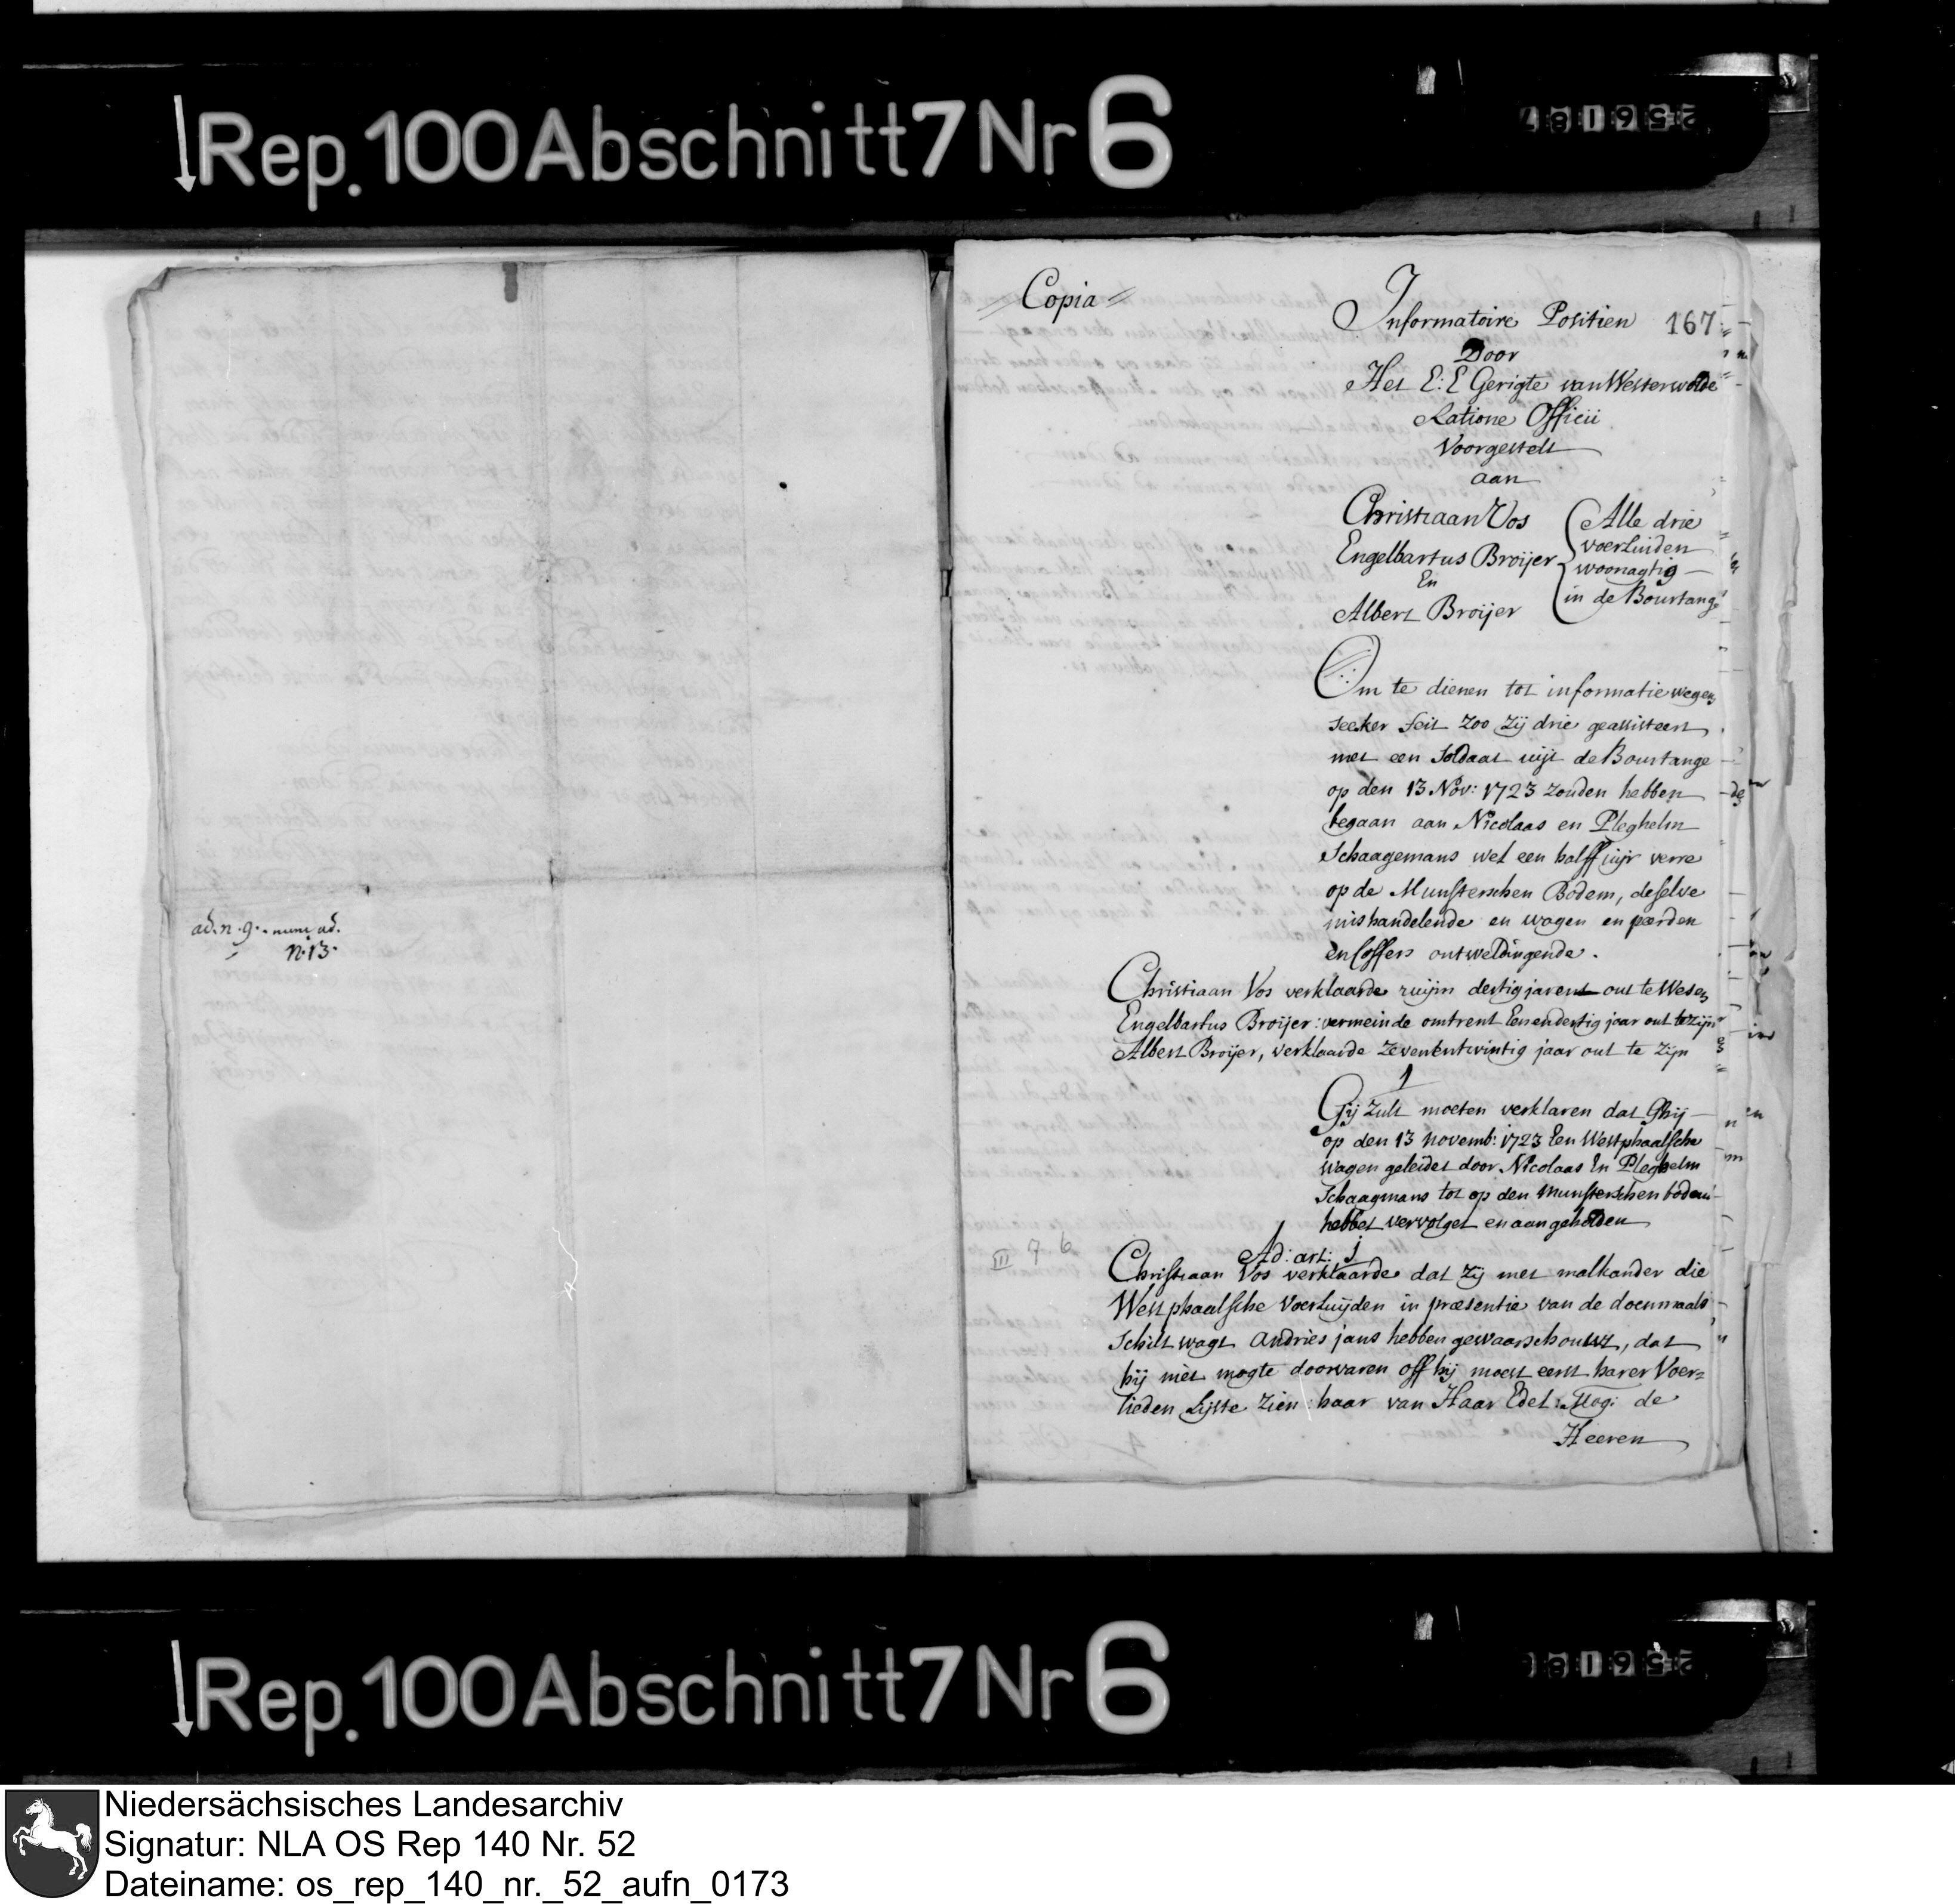 Rep. 100 Abschnitt 7 Nr 6
256187
ad. n. 9. nunc ad.
n. 13.
Copia
Informatoire Positien 167
Door
Het E: E Gerigte van Westerwolde
Ratione Officii
Voorgestelt
aan
Christiaan Vos
Engelbartus Broijer
En
Albert Broijer
Alle drie
voerluiden
woonagtig
in de Bourtange
Om te dienen tot informatie wegens
seeker feit zoo zij drie geassisteert
met een Soldaat uijt de Bourtange
op den 13 Nov: 1723 zouden hebben
begaan aan Nicolaas en Pleghelm
Schaagemans wel een halff uijr verre
op de Munsterschen Bodem, deselve
mishandelende en wagen en pærden
en Coffers ontweldingende.
Christiaan Vos verklaarde ruijm dertig jaren out te Wesen
Engelbartus Broijer: vermeinde omtrent Eenendertig jaar out te zijn
Albert Broijer, verklaarde zevenentwintig jaar out te zijn
1
Gij zult moeten verklaren dat Ghij
op den 13 novemb: 1723 Een Westphaalsche
wagen geleidet door Nicolaas En Pleghelm
Schaagmans tot op den Munsterschen bodem
hebbet vervolget en aangeholden
III 7 6
Ad: art: 1
Christiaan Vos verklaarde dat zij met malkander die
Westphaalsche Voerluijden in præsentie van de doenmaals
Schiltwagt Andries jans hebben gewaarschouwt, dat
hij niet mogte doorvaren off hij moest eerst harer Voer=
lieden Lijste zien: haar van Haar Edel: Mog: de
Heeren
Rep. 100 Abschnitt 7 Nr 6
Niedersächsisches Landesarchiv
Signatur: NLA OS Rep 140 Nr. 52
Dateiname: os_rep_140_nr._52_aufn_0173